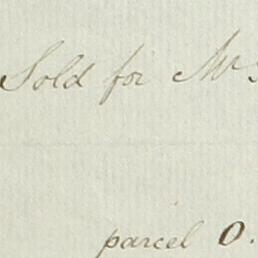 Sold for Mrs
parcel O.